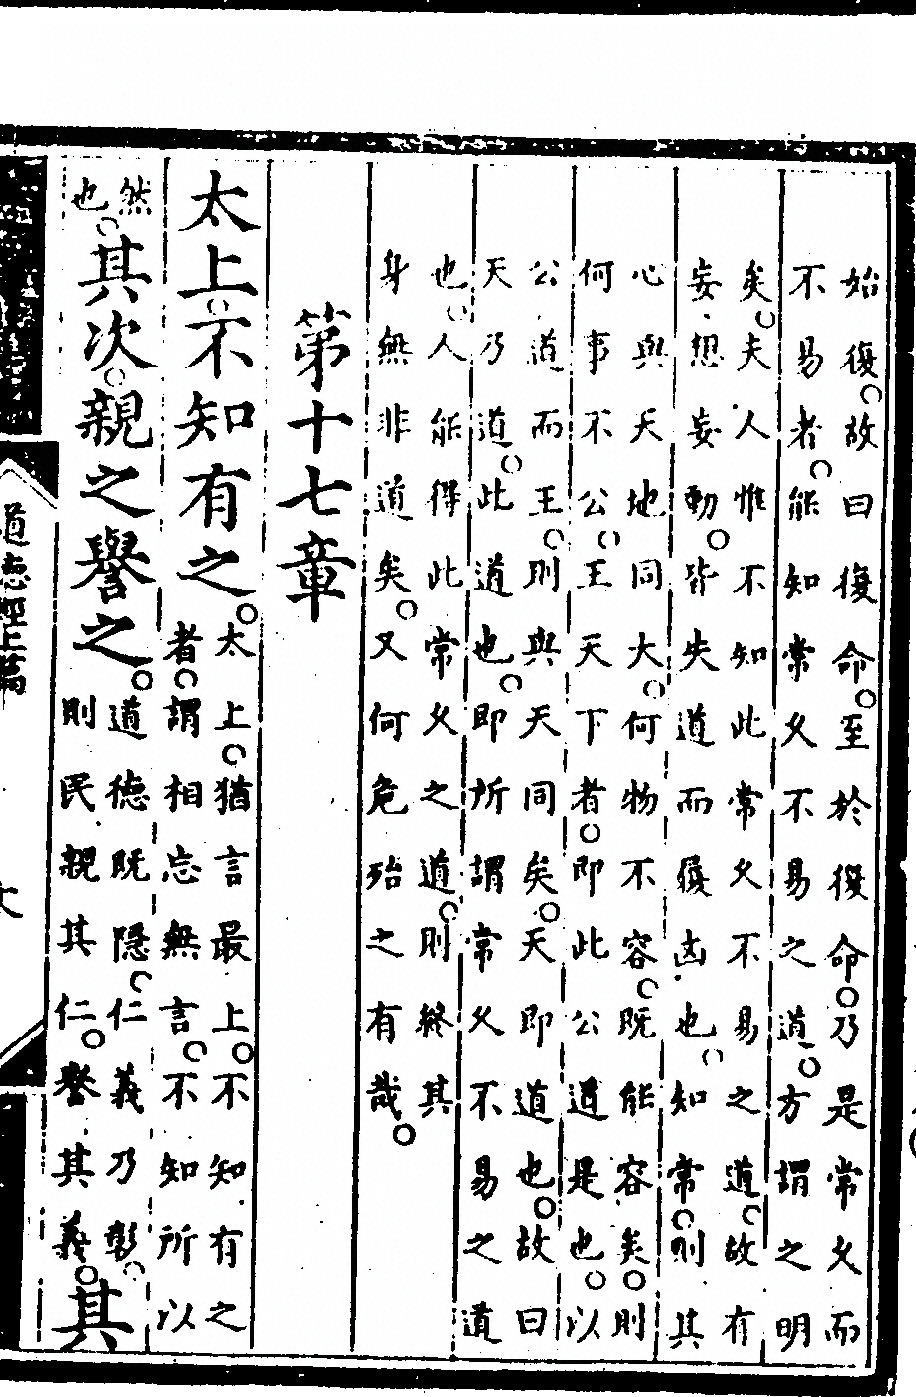 始復。故曰復命。至於復命。乃是常久而
不易者。能知常久不易之道。方謂之明
矣。夫人惟不知此常久不易之道。故有
妄想妄動。皆失道而履凶也。知常。則其
心與天地同大。何物不容。既能容矣。則
何事不公。王天下者。即此公道是也。以
公道而王。則與天同矣。天即道也。故曰
天乃道。此道也。即所謂常久不易之道
也。人能得此常久之道。則終其
身無非道矣。又何危殆之有哉。
第十七章
太上。不知有之。
太上。猶言最上。不知有之
者。謂相忘無言。不知所以
然
也。
其次。親之譽之。
道德既隱。仁義乃彰。
則民親其仁。譽其義。
其
道德經上篇